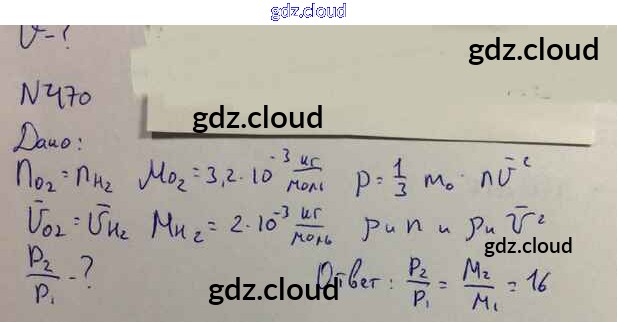 gdz.cloud
V-?
gdz.cloud
N470
gdz.cloud
Дано:
n₀₂ = n_H₂ M₀₂ = 3,2·10⁻³ кг/моль p = 1/3 m₀ · n V̄²
V̄₀₂ = V̄_H₂ M_H₂ = 2·10⁻³ кг/моль p и n и p и V̄²
gdz.cloud
P₂/P₁ - ? Ответ: P₂/P₁ = M₂/M₁ = 16
gdz.cloud